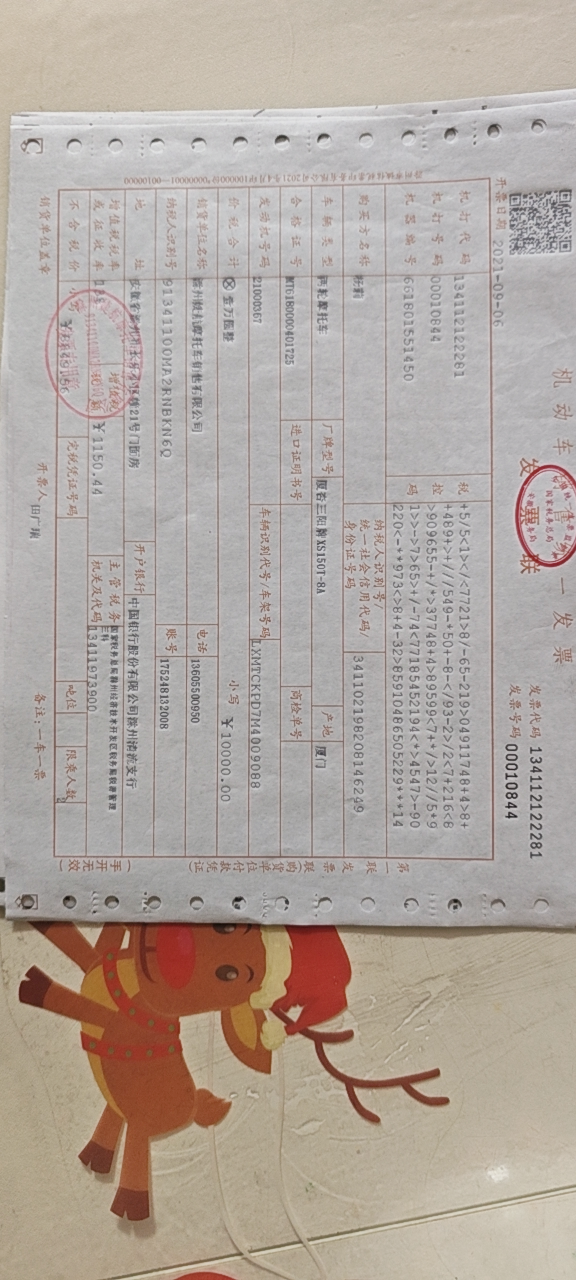 机动车销售统一发票
发票联
发票代码 134112122281
发票号码 00010844
开票日期 2021-09-06
机打代码 134112122281
机打号码 00010844
机器编号 661801551450
税控码
+5/5<1><//<7721>8/-65-219>04911748+4>8+
+489+>+///549-*50+-8-</93-2>/2<7+216<8
>909655-+/*>37748+4>89599</+*/>12//5*9
1>>->7>65>+/-74<77185452194<*>4547>-90
220<-**973<>8+4-32>8591048650522 9***14
购买方名称
纳税人识别号/统一社会信用代码/身份证号码 341102198608146249
车辆类型 两轮摩托车
厂牌型号 厦杏三阳牌XS150T-8A
产地 厦门
合格证号 WT618000401725
进口证明书号
商检单号
发动机号码 21000367
车辆识别代号/车架号码 LXMTCKPD7M4009088
价税合计 ⊗壹万圆整
小写 ￥10000.00
销货单位名称
电话 13605500950
纳税人识别号 91341100MA2RNBKN6Q
账号 175248132008
地址
开户银行 中国银行股份有限公司滁州清流支行
增值税税率或征收率
增值税税额 ￥1150.44
主管税务机关及代码 国家税务总局滁州经济技术开发区税务局税源管理
13411973900
不含税价 小写
完税凭证号码
吨位
限乘人数
销货单位盖章
开票人 田广瑞
备注：一车一票
第一联 发票联（购货单位付款凭证）
（手开无效）